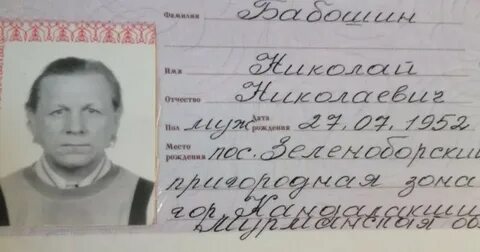 Фамилия Бабошин
Имя Николай
Отчество Николаевич
Пол муж Дата рождения 27.07.1952
Место рождения пос. Зеленоборский
пригородная зона
гор. Кандалакши
Мурманская об